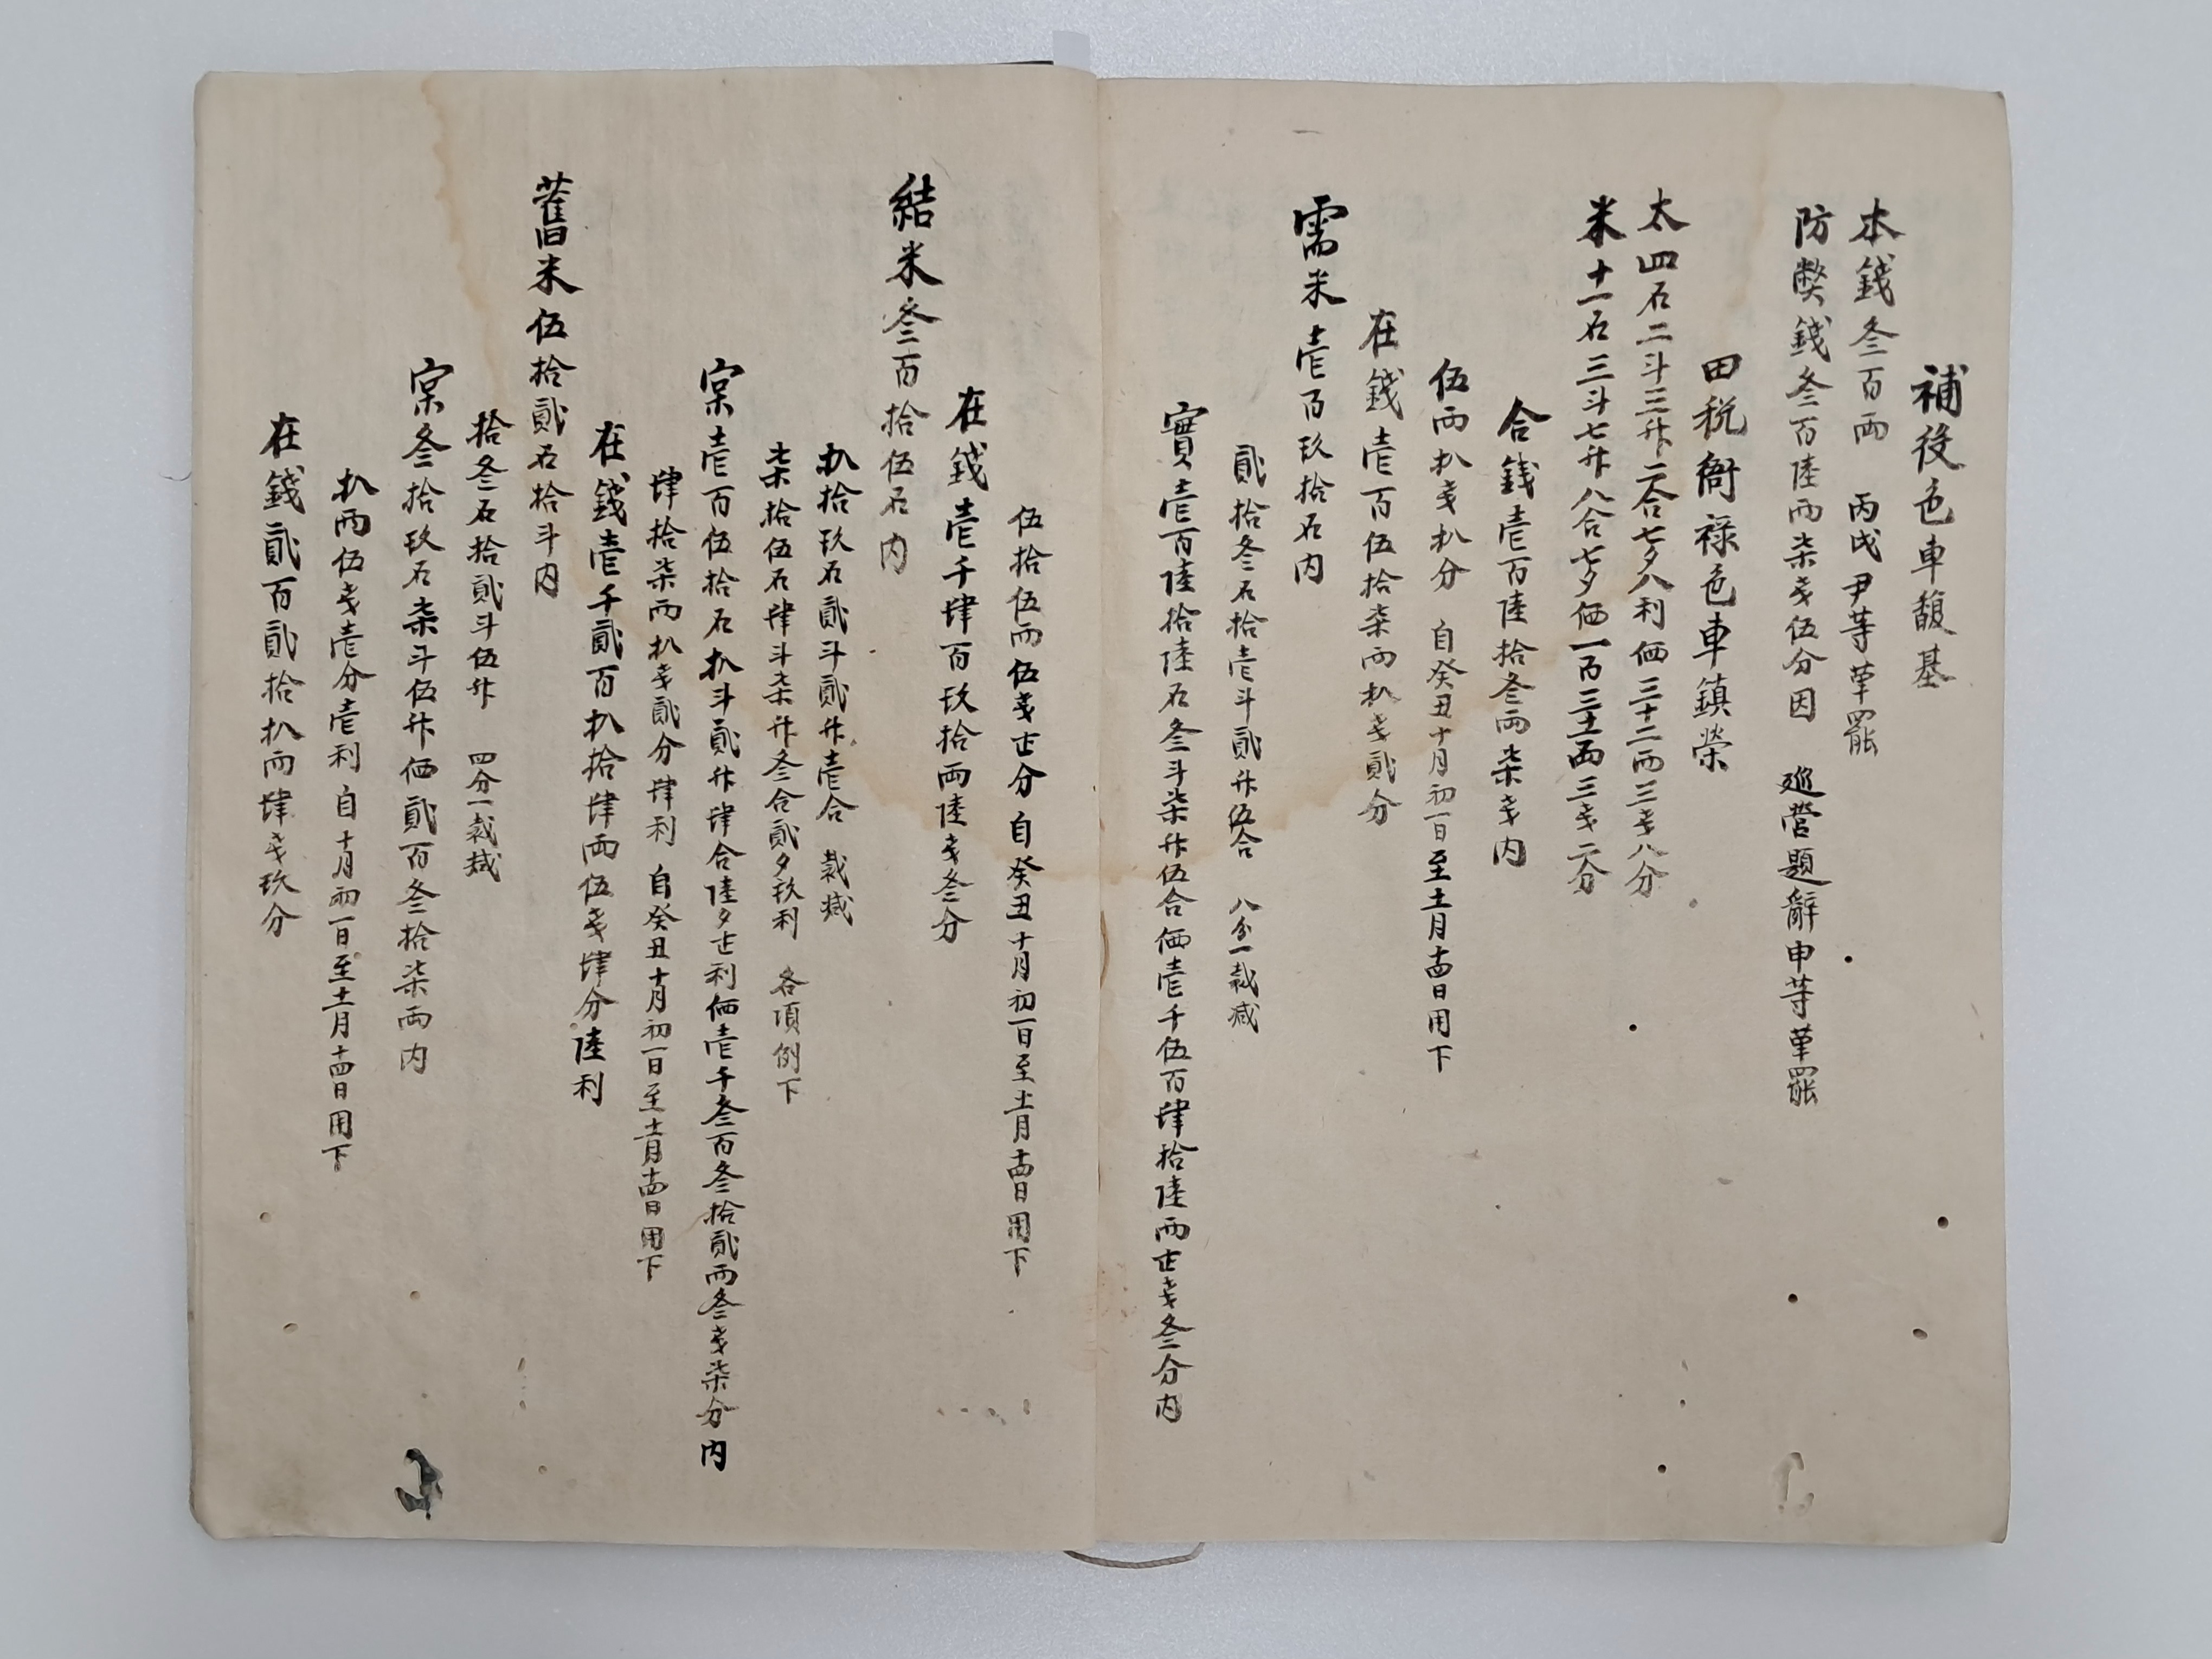 補役色車馥基
本錢叄百兩 丙戌尹等革罷
防弊錢叄百陸兩柒戔伍分因 巡營題辭申等革罷
田稅衙祿色車鎭榮
太四石二斗三升二合七夕八利価三十二兩三戔八分
米十一石三斗七升八合七夕価一百三十一兩三戔二分
合錢壹百陸拾叄兩柒戔內
伍兩扒戔扒分 自癸丑十月初一日至十一月十四日用下
在錢壹百伍拾柒兩扒戔貳分
需米壹百玖拾石內
貳拾叄石拾壹斗貳升伍合 八分一裁减
實壹百陸拾陸石叄斗柒升伍合価壹千伍百肆拾陸兩㱏戔叄分內
伍拾伍兩伍戔㱏分 自癸丑十月初一日至十一月十四日用下
在錢壹千肆百玖拾兩陸戔叄分
結米叄百拾伍石內
扒拾玖石貳斗貳升壹合 裁减
柒拾伍石肆斗柒升叄合貳夕玖利 各項例下
宲壹百伍拾石扒斗貳升肆合陸夕㱏利価壹千叄百叄拾貳兩叄戔柒分內
肆拾柒兩扒戔貳分肆利 自癸丑十月初一日至十一月十四日用下
在錢壹千貳百扒拾肆兩伍戔肆分陸利
舊米伍拾貳石拾斗內
拾叄石拾貳斗伍升 四分一裁减
宲叄拾玖石柒斗伍升価貳百叄拾柒兩內
扒兩伍戔壹分壹利 自十月初一日至十一月十四日用下
在錢貳百貳拾扒兩肆戔玖分